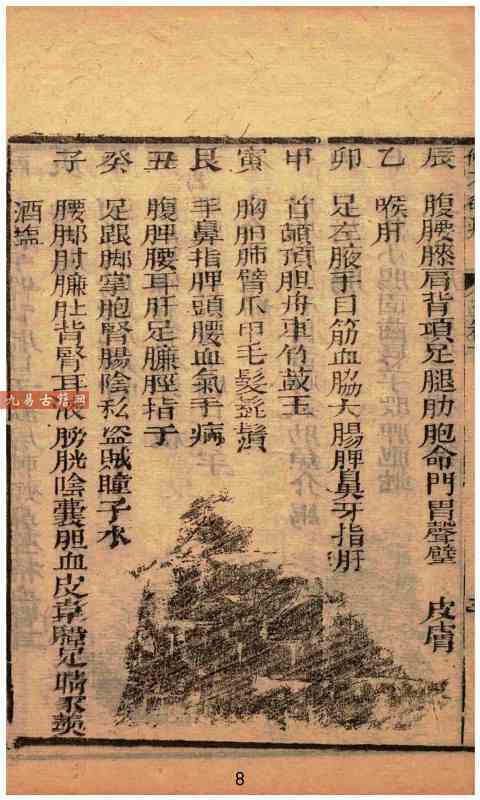 辰　腹腰膝肩背項足腿肋胞命門胃聲壁　皮膚
乙　喉肝
卯　足左腋手目筋血脇大腸脾鼻牙指肝
甲　首頭頂胆舟車竹鼓玉
寅　胸胆肺臂爪甲毛髮髭鬚
艮　手鼻指脾頭腰血氣手病
丑　腹脾腰耳肝足臁脛指子
癸　足跟脚掌胞腎腸陰私盗賊瞳子水
子　腰脚肘臁肚背腎耳液膀胱陰囊胆血皮足
酒塩
九易古籍網
8